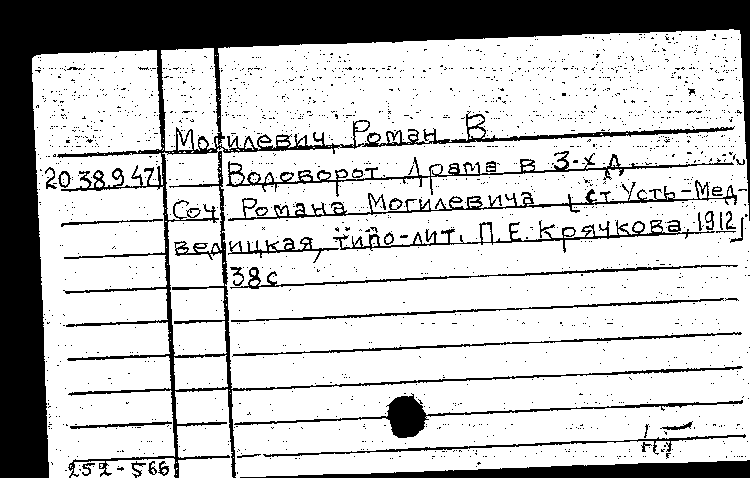 Могилевич, Роман В.
20.38.9.471 Водоворот. Драма в 3-х д.
Соч. Романа Могилевича. [ст. Усть-Мед-
ведицкая, типо-лит. П.Е. Крячкова, 1912]
38 с
252-566